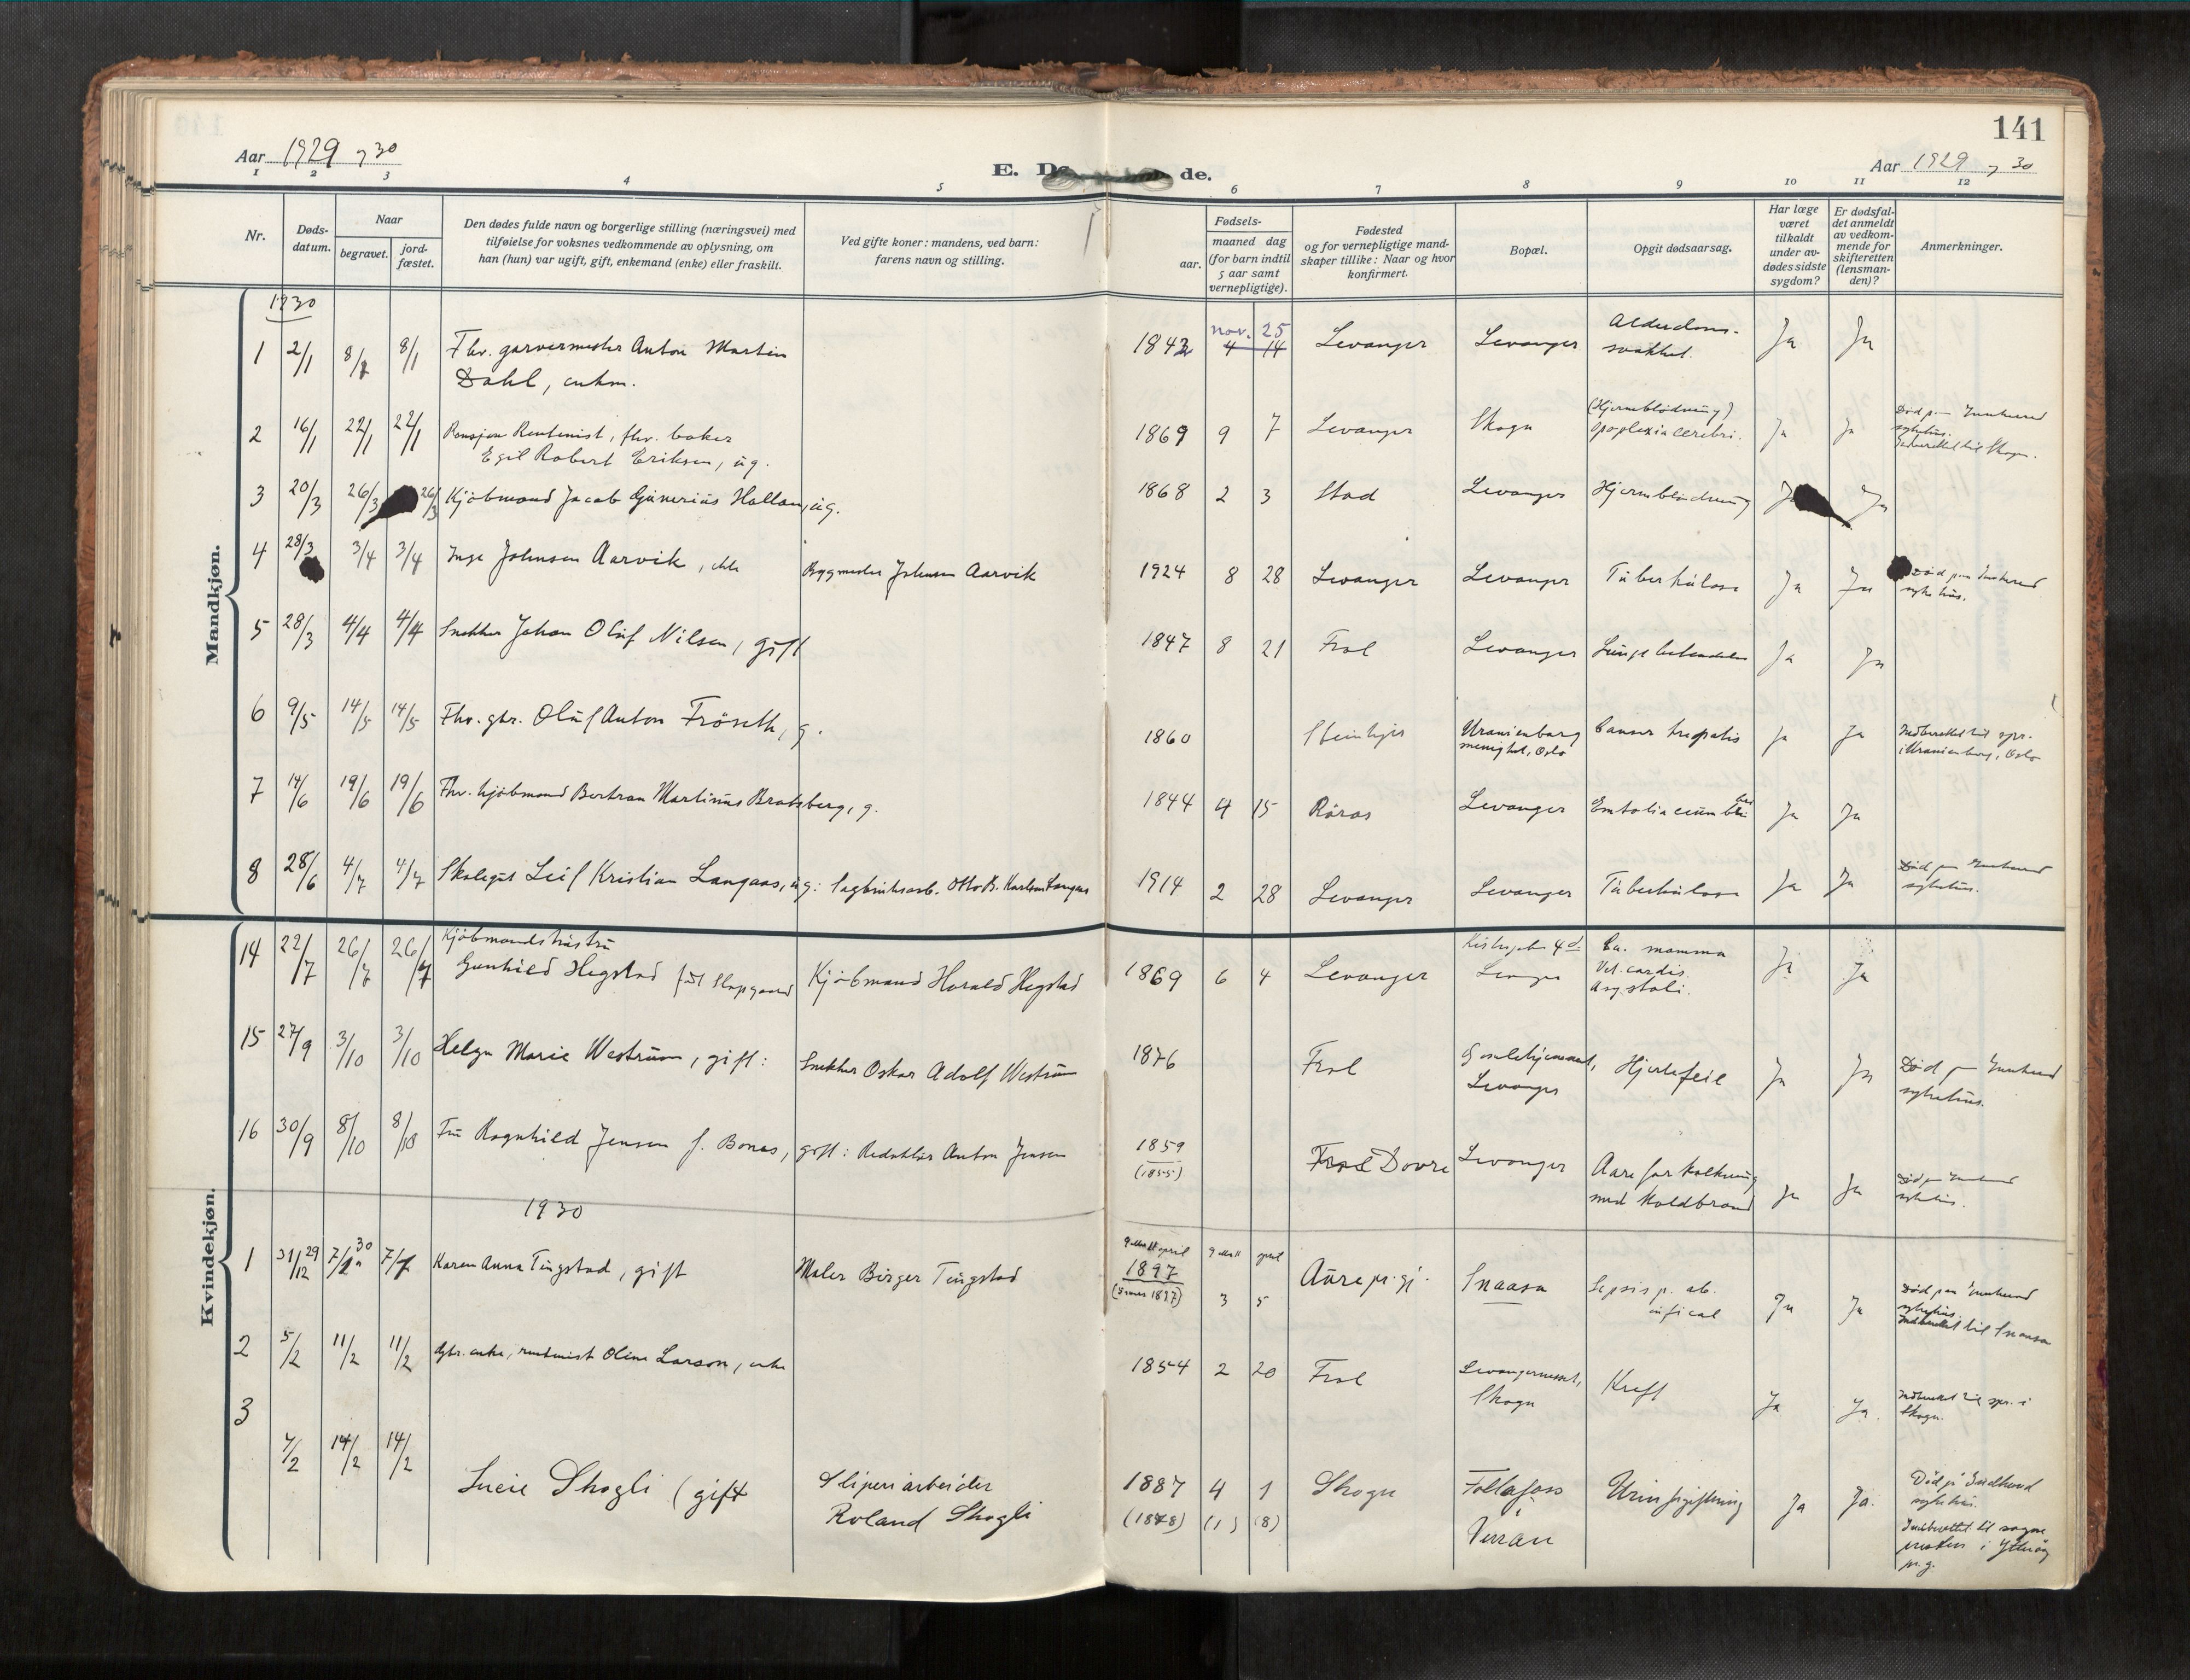 141
Aar 1929 og 30
E. Dø de.
Aar 1929 og 30
1 2 3 4 5 6 7 8 9 10 11 12
Nr.
Døds-
datum.
Naar
begravet.
jord-
fæstet.
Den dødes fulde navn og borgerlige stilling (næringsvei) med
tilføielse for voksnes vedkommende av oplysning, om
han (hun) var ugift, gift, enkemand (enke) eller fraskilt.
Ved gifte koner: mandens, ved barn:
farens navn og stilling.
Fødsels-
aar.
maaned dag
(for barn indtil
5 aar samt
vernepligtige).
Fødested
og for vernepligtige mand-
skaper tillike: Naar og hvor
konfirmert.
Bopæl.
Opgit dødsaarsag.
Har læge
været
tilkaldt
under av-
dødes sidste
sygdom?
Er dødsfal-
det anmeldt
av vedkom-
mende for
skifteretten
(lensman-
den)?
Anmerkninger.
Mandkjøn.
1930
1 2/1 8/1 8/1 Fhv. garvermester Anton Martin
Dahl, enkm.
1843 nov. 25
4 14
Levanger Levanger Alderdoms-
svakhet. Ja Ja
2 16/1 22/1 22/1 Rentenist, fhv. baker
Egil Robert Eriksen, ug.
1869 9 7 Levanger Skogn (Hjerneblödning)
Apoplexia cerebri. Ja Ja Död paa Innherred
sykehus.
Indberettet til Skogn.
3 20/3 26/3 26/3 Kjöbmand Jacob Gunerius Hallan, ug.
1868 2 3 Stod Levanger Hjerneblödning Ja Ja
4 28/3 3/4 3/4 Inge Johnsen Aarvik,
Bygmester Johnsen Aarvik
1924 8 28 Levanger Levanger Tuberkulose Ja Ja Död paa Innherred
sykehus.
5 28/3 4/4 4/4 Snekker Johan Oluf Nilsen, gift
1847 8 21 Frol Levanger Lungebetendelse Ja Ja
6 9/5 14/5 14/5 Fhv. gbr. Oluf Anton Fröseth, g.
1860 Steinkjer Uranienborg
menighet, Oslo Cancer hepatis Ja Ja Indberettet til spr.
i Uranienborg, Oslo
7 14/6 19/6 19/6 Fhv. kjöbmand Bertran Martinus Bratsberg, g.
1844 4 15 Röros Levanger Ja Ja
8 28/6 4/7 4/7 Skolegut Leif Kristian Langaas, ug: Sagbruksarb. Otto B. Karlsen Langaas
1914 2 28 Levanger Levanger Tuberkulose Ja Ja Död paa Innherred
sykehus.
Kvindekjøn.
14 22/7 26/7 26/7 Kjöbmandshustru
Gunhild Hegstad född Slapgaard Kjöbmand Harald Hegstad
1869 6 4 Levanger Kirkegaten 4d
Levanger Ca. mamma
Vit. cordis.
Asystoli. Ja Ja
15 27/9 3/10 3/10 Helga Marie Westrum, gift: Snekker Oskar Adolf Westrum
1876 Frol Gamlehjemmet,
Levanger Hjertefeil Ja Ja Död paa Innherred
sykehus.
16 30/9 8/10 8/10 Fru Ragnhild Jensen f. Bones, gift: Redaktör Anton Jensen
1859
(1855)
Frol Dovre Levanger Aareforkalkning
med Koldbrand Ja Ja Död paa Innherred
sykehus.
1930
1 31/12 29 7/1 30 7/1 Karen Anna Tingstad, gift Maler Birger Tingstad
april april
1897
(5 mars 1897) 3 5
Aure pr.gj. Snaasa Sepsis p. ab.
Ja Ja Död paa Innherred
sykehus.
Indberettet til Snaasa
2 5/2 11/2 11/2 Gbr. enke, rentenist Oline Larson, enke
1854 2 20 Frol Levangernesset,
Skogn Kreft Ja Ja. Indberettet til spr. i
Skogn.
3 7/2 14/2 14/2 Lucie Skogli (gift Sliperiarbeider
Roland Skogli
1887 4 1
(1878) (1) (8)
Skogn Follafoss
i
Verran Urinforgiftning Ja Ja. Död på Indherred
sykehus.
Indberettet til sogne
presten i Ytteröy
pr.g.